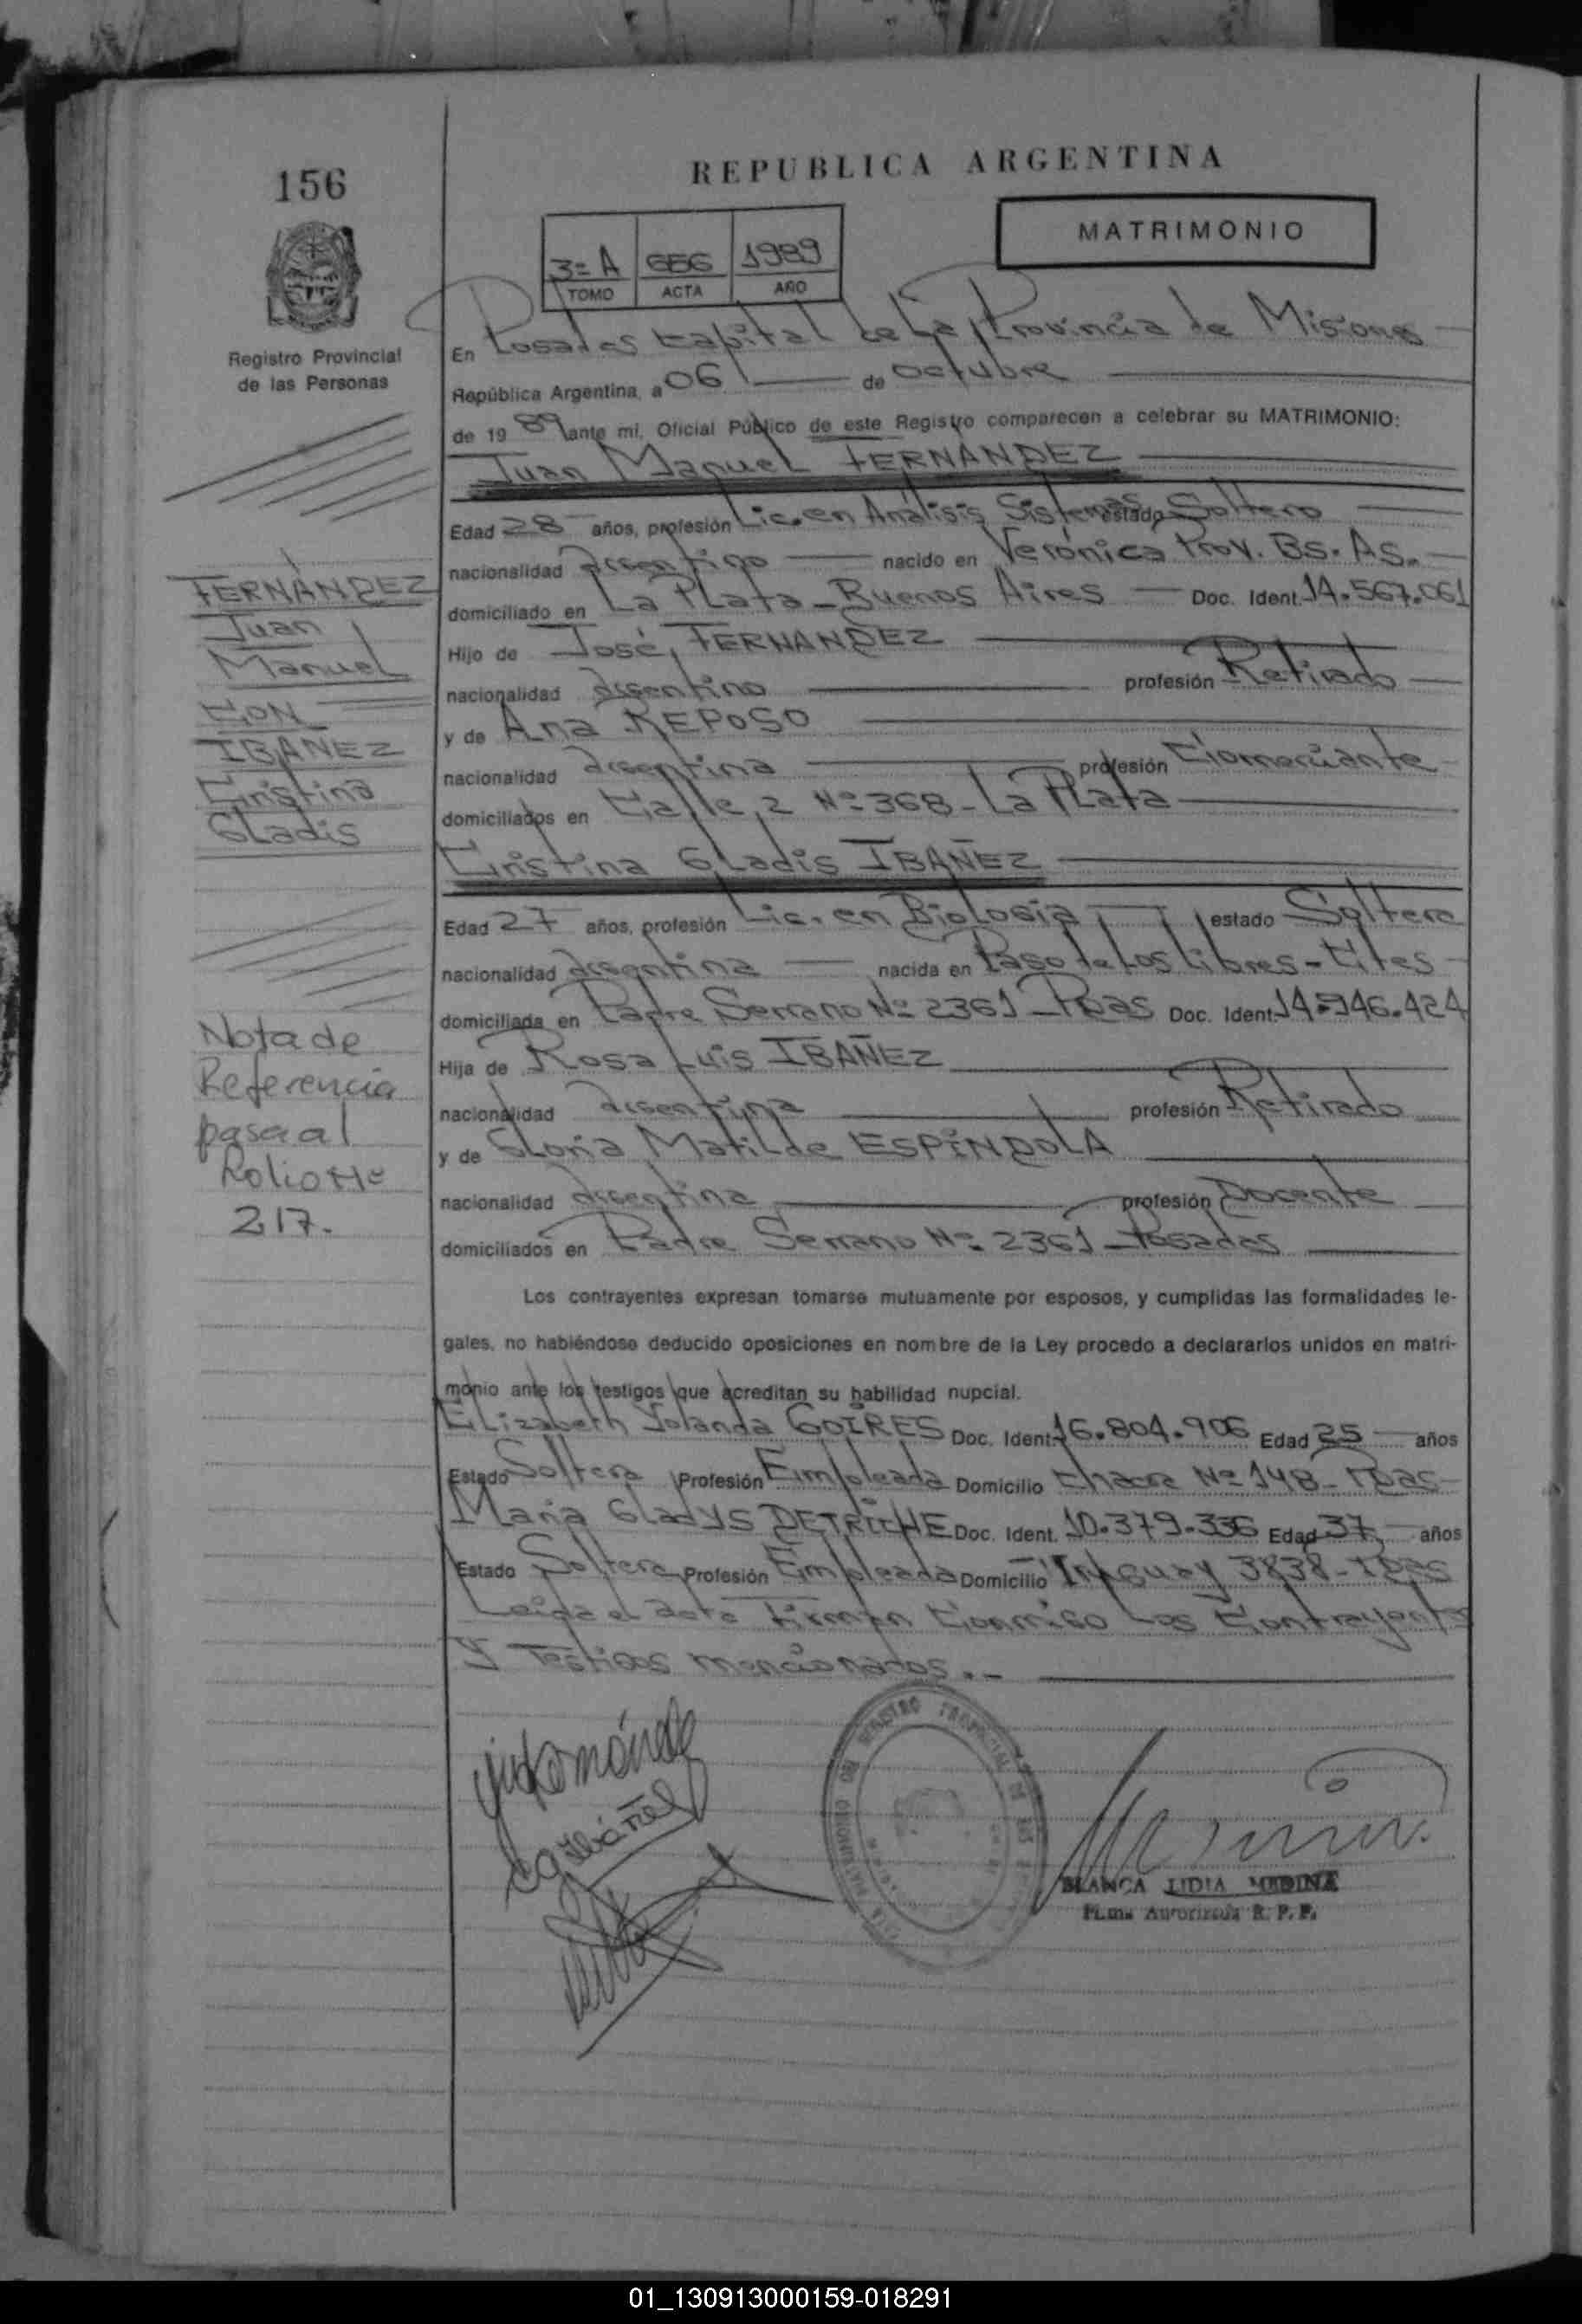 156
REPUBLICA ARGENTINA
MATRIMONIO
3= A 656 1989
TOMO ACTA AÑO
Registro Provincial
de las Personas
En Posadas Capital de La Provincia de Misiones
República Argentina, a 06 de Octubre
de 19 89 ante mi, Oficial Público de este Registro comparecen a celebrar su MATRIMONIO:
Juan Manuel FERNÁNDEZ
Edad 28 años, profesión Lic. en Análisis Sistemas estado Soltero
nacionalidad argentino nacido en Verónica Prov. Bs. As.
domiciliado en La Plata - Buenos Aires Doc. Ident. 14.567.061
Hijo de José FERNANDEZ
nacionalidad argentino profesión Retirado
y de Ana REPOSO
nacionalidad argentina profesión Comerciante
domiciliados en Calle 2 Nº 368 - La Plata
Cristina Gladis IBAÑEZ
Edad 27 años, profesión Lic. en Biología estado Soltera
nacionalidad argentina nacida en Paso de Los Libres - Ctes
domiciliada en Padre Serrano Nº 2361 - Pdas Doc. Ident. 14.946.424
Hija de Rosa Luis IBAÑEZ
nacionalidad argentina profesión Retirado
y de Gloria Matilde ESPÍNDOLA
nacionalidad argentina profesión Docente
domiciliados en Padre Serrano Nº 2361 - Posadas
Los contrayentes expresan tomarse mutuamente por esposos, y cumplidas las formalidades le-
gales, no habiéndose deducido oposiciones en nombre de la Ley procedo a declararlos unidos en matri-
monio ante los testigos que acreditan su habilidad nupcial.
Elizabeth Yolanda GOIRES Doc. Ident. 16.804.906 Edad 25 años
Estado Soltera Profesión Empleada Domicilio Chacra Nº 148 - Pdas
Maria Gladys DETRICHE Doc. Ident. 10.379.336 Edad 37 años
Estado Soltera Profesión Empleada Domicilio Uruguay 3838 - Pdas
Leida el Acta Firman Conmigo Los Contrayentes
Y Testigos mencionados.-
FERNÁNDEZ
Juan
Manuel
CON
IBAÑEZ
Cristina
Gladis
Nota de
Referencia
pasa al
Folio Nº
217.
BLANCA LIDIA MEDINA
Firma Autorizada R. P. P.
01_130913000159-018291